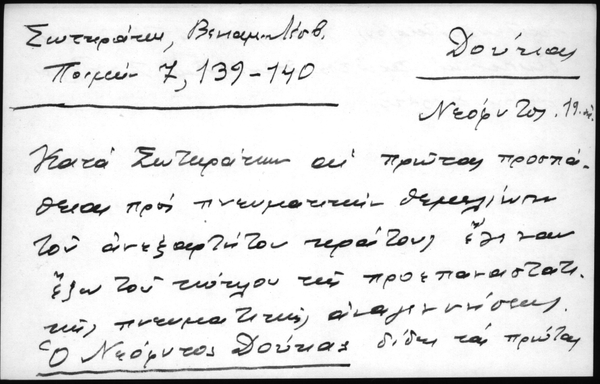 Σωτηράκη, Βενιαμ. Λέσβ.
Ποιμήν 7, 139-140
Δούκας
Νεόφυτος. 19 αἰ.
Κατά Σωτηράκην αἱ πρῶται προσπά-
θειαι πρός πνευματικήν θεμελίωσιν
τοῦ ἀνεξαρτήτου κράτους ἔγιναν
ἔξω τοῦ κύκλου τῆς προεπαναστατι-
κῆς πνευματικῆς ἀναγεννήσεως.
Ὁ Νεόφυτος Δούκας δίδει τάς πρώτας